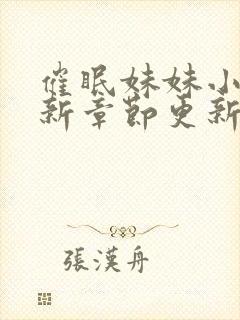 催眠妹妹小
新章節更新
張漢舟